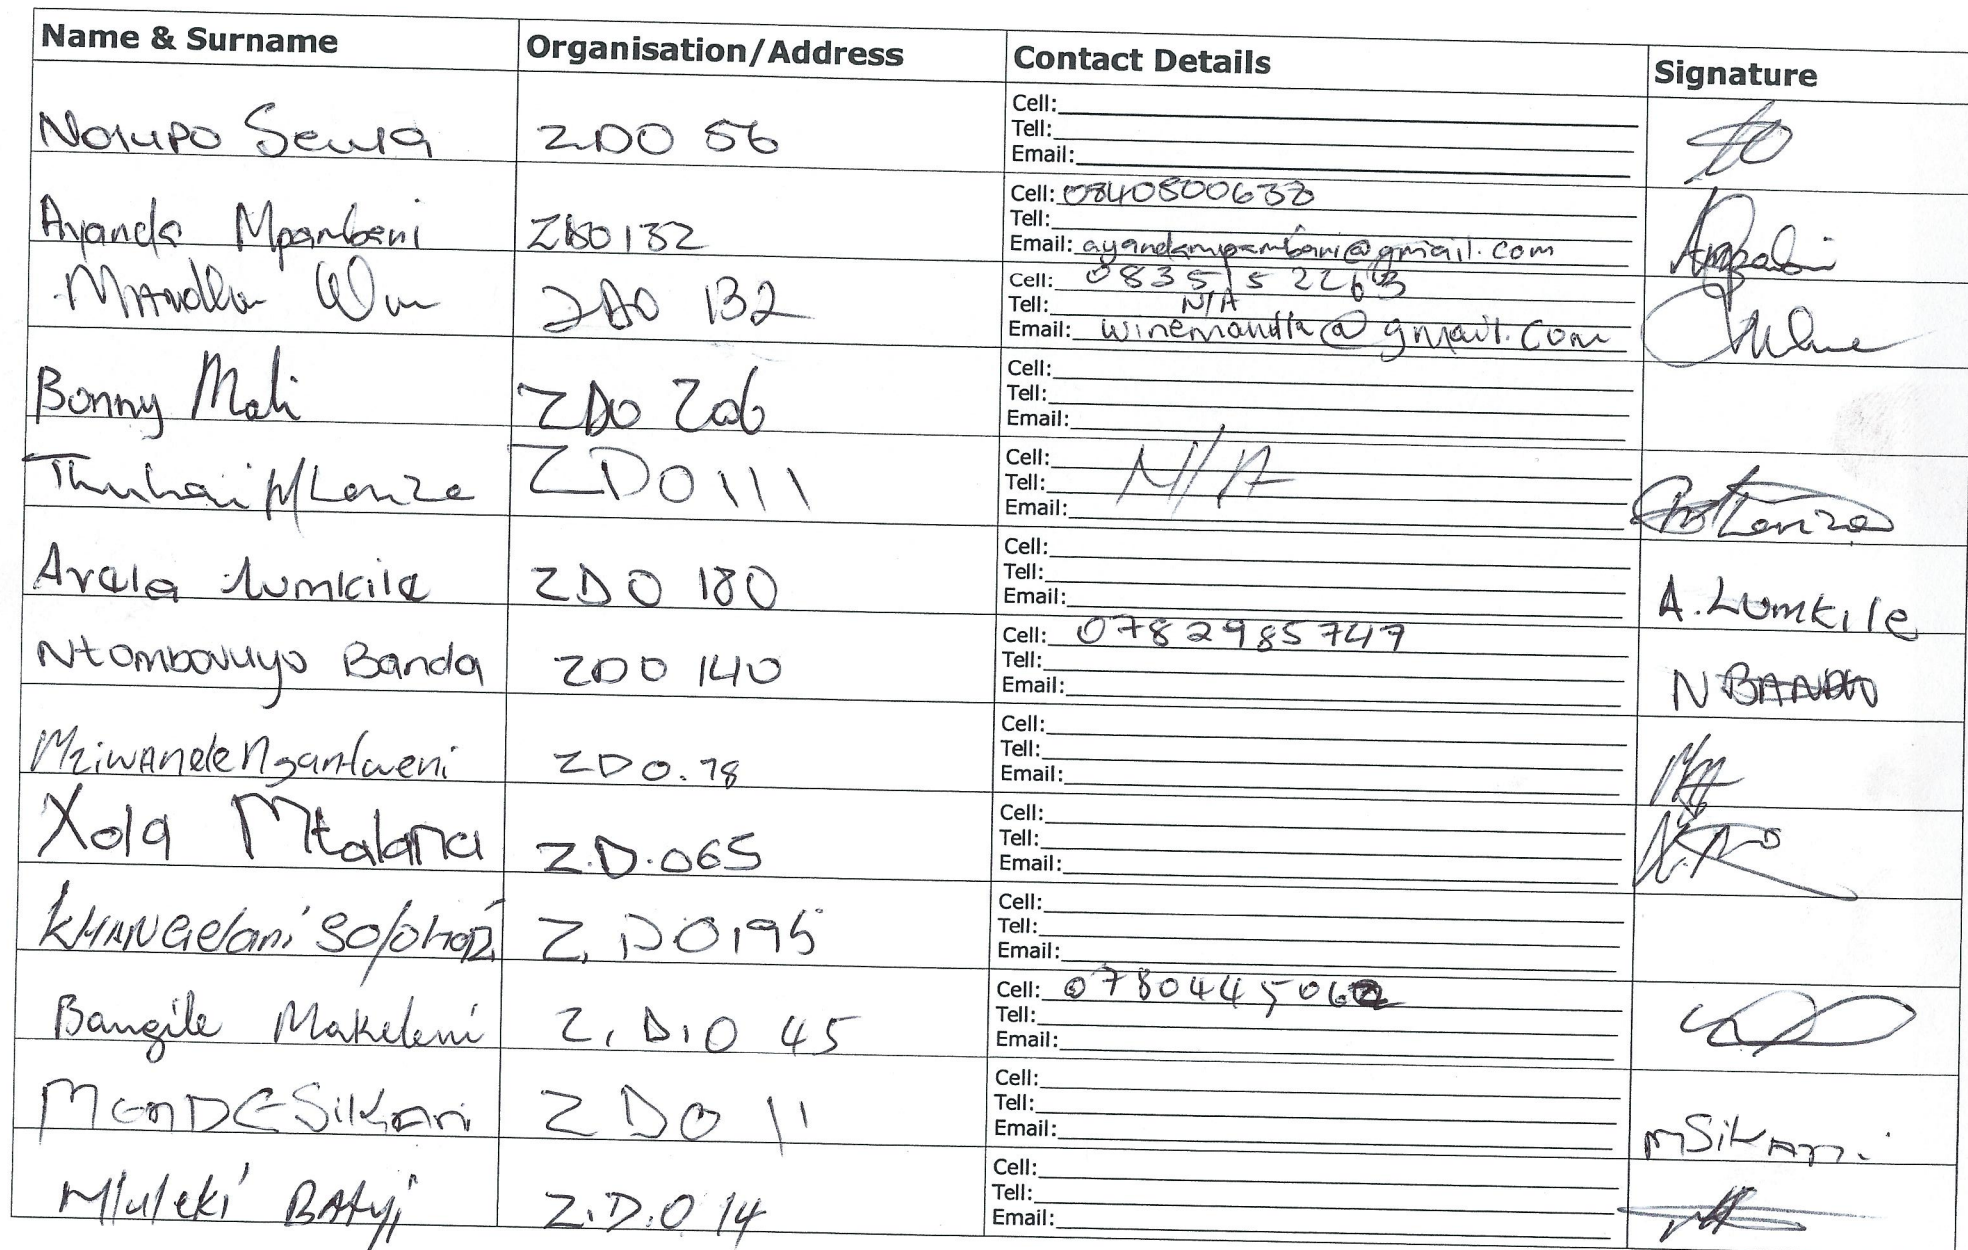 Name & Surname Organisation/Address Contact Details Signature
ZDO 56 Cell: Tell: Email:
Ayanda Mpambani ZDO132 Cell: Tell: Email: ayandampambani@gmail.com
Mandla ZDO 132 Cell: 0835152263 Tell: N/A Email: winemandla@gmail.com
Bonny Mali ZDO 206 Cell: Tell: Email:
ZDO111 Cell: Tell: N/A Email:
Lumkile ZDO 180 Cell: Tell: Email: A. Lumkile
Ntombovuyo Banda ZDO 140 Cell: 0782985747 Tell: Email: N BANDA
Mziwandele ZDO.78 Cell: Tell: Email:
Xola Mtalana Z.D.065 Cell: Tell: Email:
KHANGelani Z.DO195 Cell: Tell: Email:
Bangile Makeleni Z.D.O 45 Cell: Tell: Email:
ZDO 11 Cell: Tell: Email:
Mluleki BAtyi Z.D.O 14 Cell: Tell: Email: